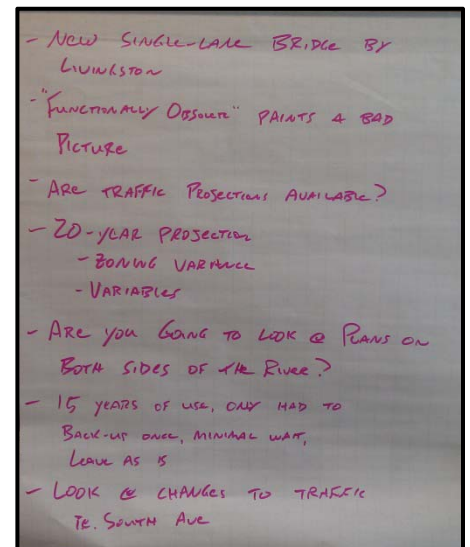 - New Single-Lane Bridge by
Livingston
- "Functionally Obsolete" paints a bad
Picture
- Are traffic Projections Available?
- 20-year projection
- Zoning Variance
- Variables
- Are you Going to look @ Plans on
Both sides of the River?
- 15 years of use, only had to
Back-up once, minimal wait,
Leave as is
- Look @ changes to traffic
Te. South Ave